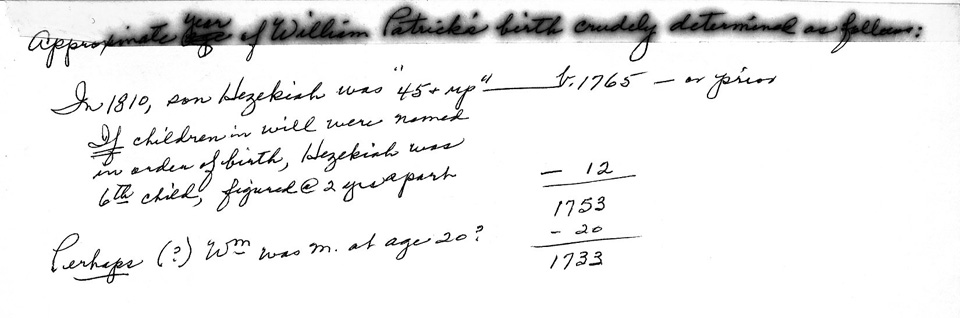 Approximate Year of William Patrick's birth crudely determined as follows:
In 1810, son Hezekiah was "45 + up" — b. 1765 — or prior
If children in will were named
in order of birth, Hezekiah was
6th child, figured @ 2 yrs apart — 12
1753
Perhaps (?) Wm was m. at age 20? - 20
1733